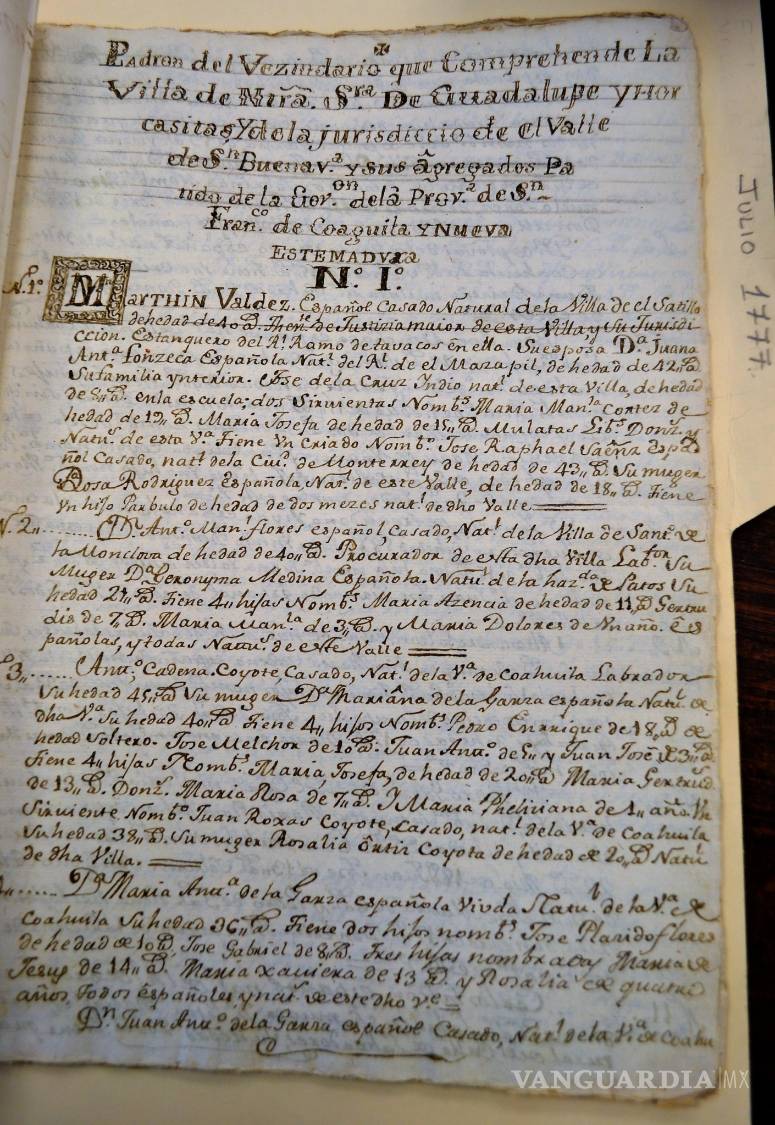 Padron del Vezindario que Comprehende La
Villa de Ntrã. Sra. De Guadalupe y Hor
casitas, Y de la jurisdiccio de el Valle
de Sn. Buenav.a y sus agregados Pa
tido de la Gov.on de la Prov.a de Sn.
Fran.co de Coaguila Y Nueva
Estemadura
N.o 1.o
N.1.o Marthin Valdez. Español Casado Natural de la Villa de el Satillo
de hedad de 40 a.s Then.te de Justizia maior de esta Villa, y su Jurisdi-
ccion. Estanquero del R.l Ramo de tavacos en ella. Su esposa D.a Juana
Ant.a fonzeca Española Nat.l del R.l de el Mazapil, de hedad de 42 a.s
Su familia ynterior. Jose de la Cruz Indio nat.l de esta Villa, de hedad
de 8 a.s en la escuela; dos Sirvientas Nomb.s Maria Man.la Cortez de
hedad de 19 a.s Maria Josefa de hedad de 15 a.s Mulatas Lib.s Donz.s y
Natu.s de esta V.a Tiene Yn Criado Nomb.o Jose Raphael Saenz Espa
ñol Casado, nat.l de la Ciu.d de Monterrey de hedad de 43 a.s Su muger
Rosa Rodriguez Española, Nat.l de este Valle, de hedad de 18 a.s Tiene
Yn hijo Parbulo de hedad de dos mezes nat.l de dho Valle
N.2 D.n Ant.o Man.l flores español, Casado, Nat.l de la Villa de Sant.o de
la Monclova de hedad de 40 a.s Procurador de esta dha Villa Lab.or Su
Muger D.a Geronyma Medina Española. Natu.l de la haz.da de Patos Su
hedad 27 a.s Tiene 4 hijas Nomb.s Maria Azencia de hedad de 11 a.s Gertru
dis de 7 a.s Maria Man.la de 3 a.s y Maria Dolores de Yn año. Es
pañolas, y todas Natu.s de este Valle
3 Antt.o Cadena. Coyote, Casado, Nat.l de la V.a de Coahuila Labrador
Su hedad 45 a.s Su muger D.a Mariâna de la Garza española Natu.l de
dha V.a Su hedad 40 a.s Tiene 4 hijos Nomb.s Pedro Enrrique de 18 a.s de
hedad Soltero. Jose Melchor de 10 a.s Juan Antt.o de 5 y Juan José de 3 a.s
Tiene 4 hijas Nomb.s Maria Josefa, de hedad de 20 a.s Maria Gertrud
de 13 a.s Donz.s Maria Rosa de 7 a.s Y Maria Pheliziana de 1 año. Yn
Sirviente Nomb.o Juan Roxas Coyote, Casado, nat.l de la V.a de Coahuila
Su hedad 38 a.s Su muger Rosalia Ortiz Coyota de hedad de 20 a.s Natu.l
de dha Villa.
D.a Maria Antt.a de la Garza española Viuda Natu.l de la V.a de
Coahuila Su hedad 36 a.s Tiene dos hijos nomb.s Jose Plazido flores
de hedad de 10 a.s Jose Gabriel de 8 a.s Tres hijas nombradas Maria de
Jesus de 14 a.s Maria xaviera de 13 a.s y Rosalia de quatro
años, todos españoles y nat.s de este dho V.e
D.n Juan Antt.o de la Garza español Casado, Nat.l de la V.a de Coahu
JULIO 1777.
VANGUARDIA|MX